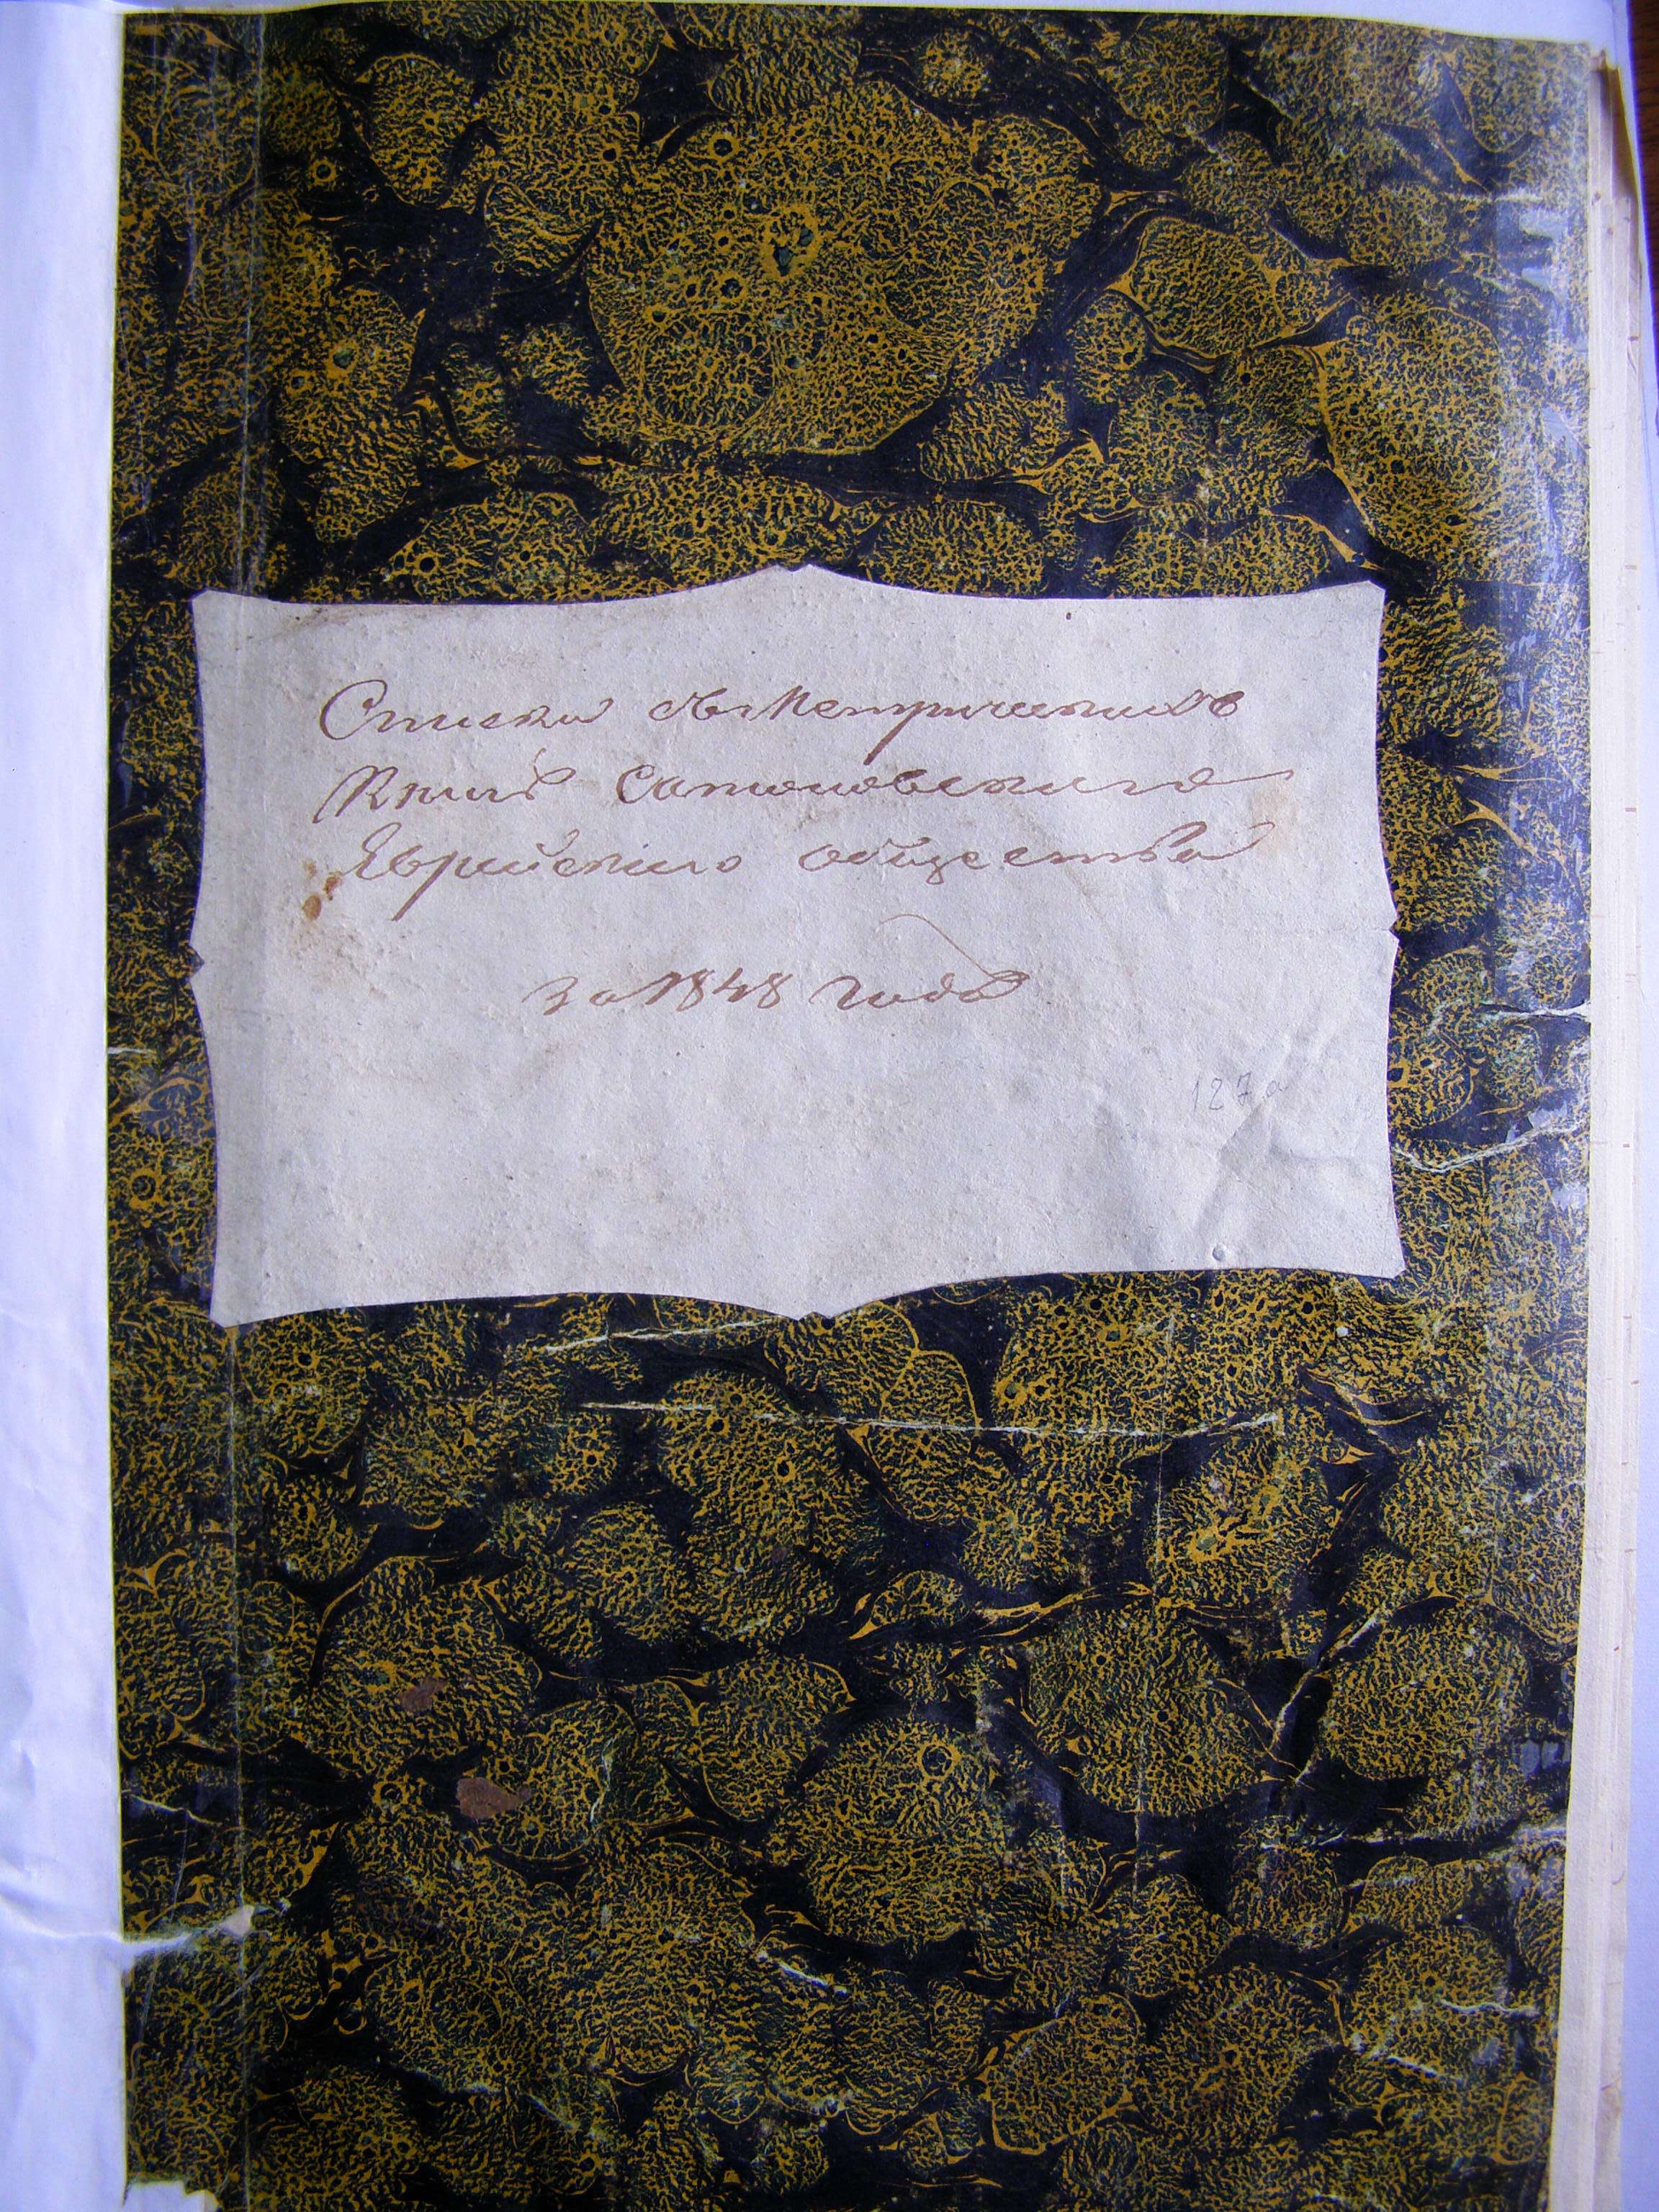 Списки съ Метрическихъ
Книгъ Сатановского
Яврейского общества
за 1848 годъ
127а